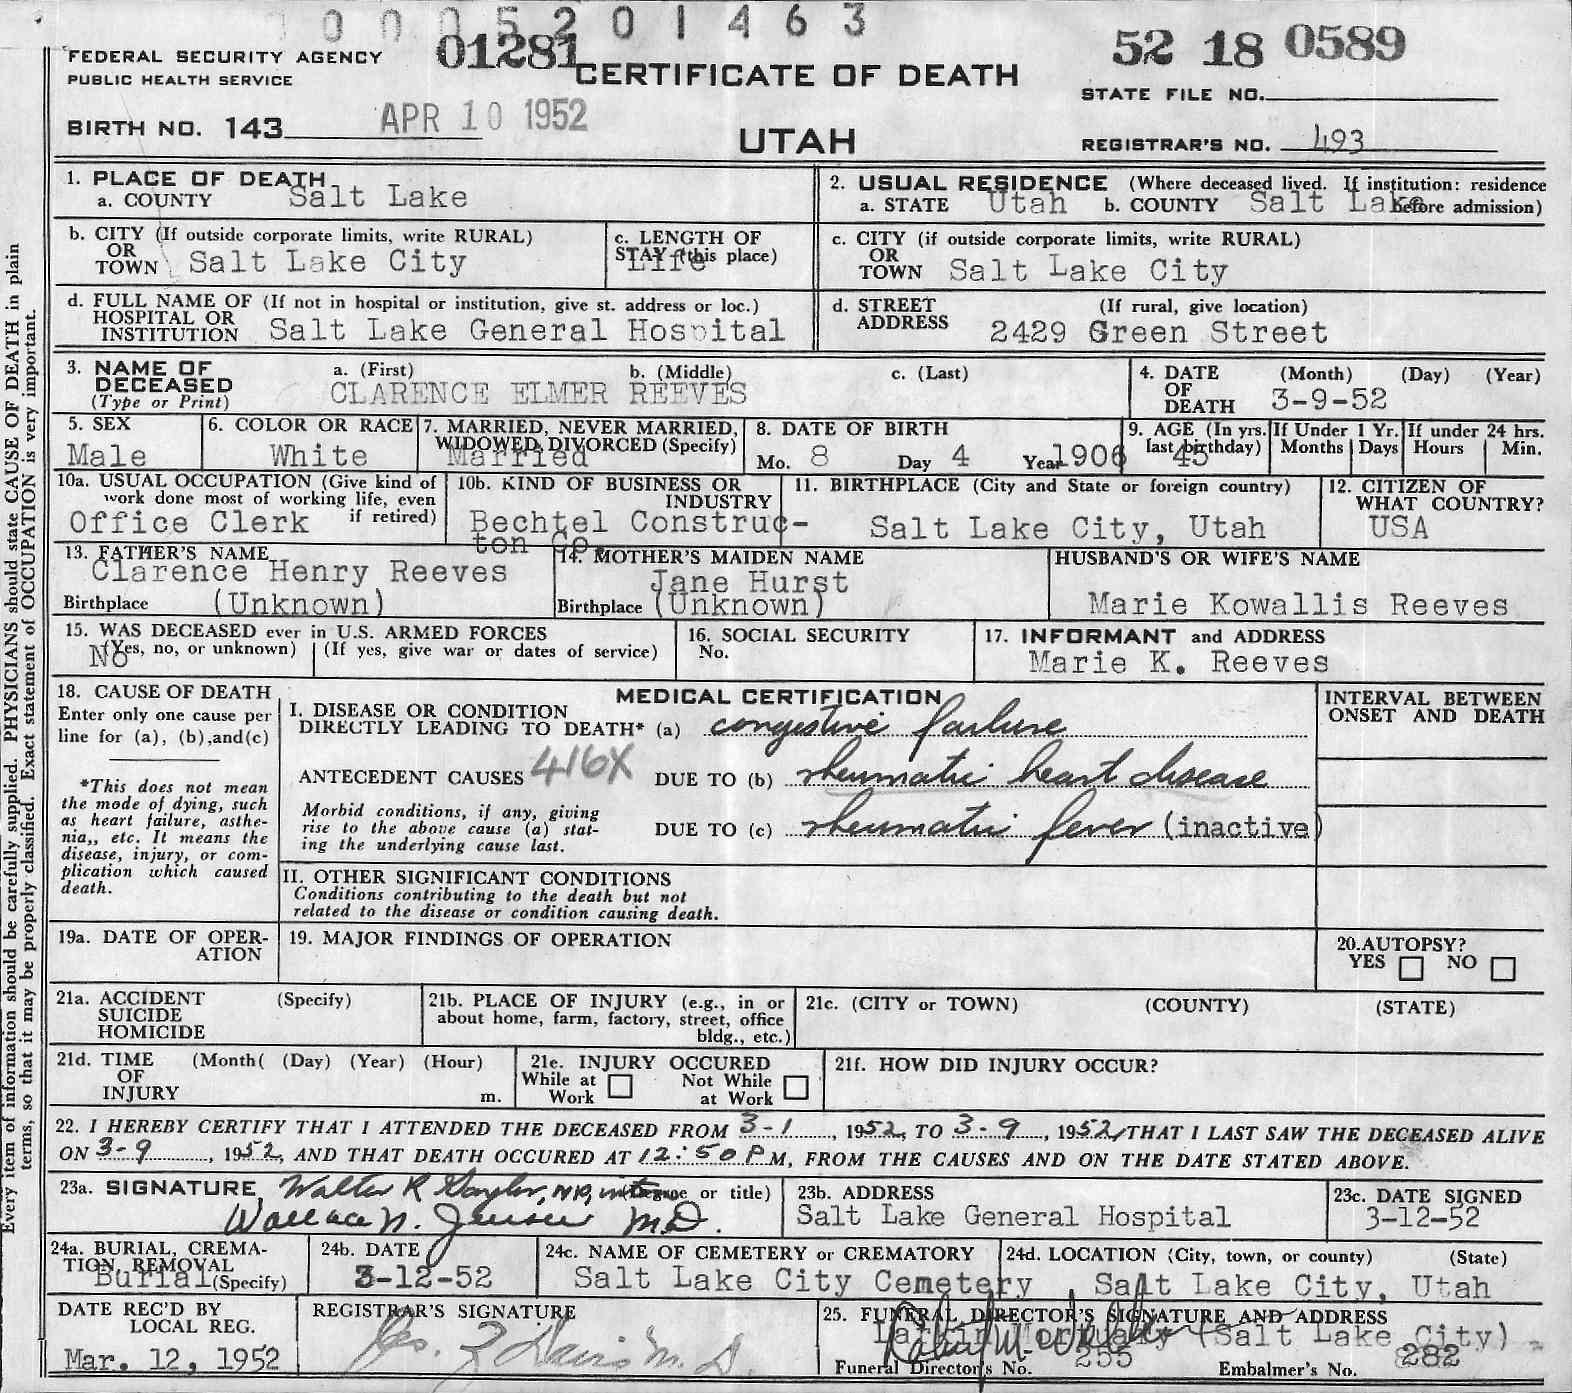 0 0 0 5 2 0 1 4 6 3
FEDERAL SECURITY AGENCY
PUBLIC HEALTH SERVICE
01281
CERTIFICATE OF DEATH
52 18 0589
STATE FILE NO.
BIRTH NO. 143
APR 10 1952
UTAH
REGISTRAR'S NO. 493
1. PLACE OF DEATH
a. COUNTY Salt Lake
2. USUAL RESIDENCE (Where deceased lived. If institution: residence before admission)
a. STATE Utah b. COUNTY Salt Lake
b. CITY (If outside corporate limits, write RURAL)
OR
TOWN Salt Lake City
c. LENGTH OF
STAY (this place)
Life
c. CITY (if outside corporate limits, write RURAL)
OR
TOWN Salt Lake City
d. FULL NAME OF (If not in hospital or institution, give st. address or loc.)
HOSPITAL OR
INSTITUTION Salt Lake General Hospital
d. STREET (If rural, give location)
ADDRESS 2429 Green Street
3. NAME OF
DECEASED
(Type or Print)
a. (First) b. (Middle) c. (Last)
CLARENCE ELMER REEVES
4. DATE (Month) (Day) (Year)
OF
DEATH 3-9-52
5. SEX
Male
6. COLOR OR RACE
White
7. MARRIED, NEVER MARRIED,
WIDOWED, DIVORCED (Specify)
Married
8. DATE OF BIRTH
Mo. 8 Day 4 Year 1906
9. AGE (In yrs.
last birthday)
45
If Under 1 Yr.
Months Days
If under 24 hrs.
Hours Min.
10a. USUAL OCCUPATION (Give kind of
work done most of working life, even
if retired)
Office Clerk
10b. KIND OF BUSINESS OR
INDUSTRY
Bechtel Construc-
ton Co.
11. BIRTHPLACE (City and State or foreign country)
Salt Lake City, Utah
12. CITIZEN OF
WHAT COUNTRY?
USA
13. FATHER'S NAME
Clarence Henry Reeves
Birthplace (Unknown)
14. MOTHER'S MAIDEN NAME
Jane Hurst
Birthplace (Unknown)
HUSBAND'S OR WIFE'S NAME
Marie Kowallis Reeves
15. WAS DECEASED ever in U.S. ARMED FORCES
(Yes, no, or unknown) (If yes, give war or dates of service)
No
16. SOCIAL SECURITY
No.
17. INFORMANT and ADDRESS
Marie K. Reeves
18. CAUSE OF DEATH
Enter only one cause per
line for (a), (b),and(c)
*This does not mean
the mode of dying, such
as heart failure, asthe-
nia,, etc. It means the
disease, injury, or com-
plication which caused
death.
MEDICAL CERTIFICATION
I. DISEASE OR CONDITION
DIRECTLY LEADING TO DEATH* (a) congestive failure
ANTECEDENT CAUSES 416X DUE TO (b) rheumatic heart disease
Morbid conditions, if any, giving
rise to the above cause (a) stat-
ing the underlying cause last.
DUE TO (c) rheumatic fever (inactive)
INTERVAL BETWEEN
ONSET AND DEATH
II. OTHER SIGNIFICANT CONDITIONS
Conditions contributing to the death but not
related to the disease or condition causing death.
19a. DATE OF OPER-
ATION
19. MAJOR FINDINGS OF OPERATION
20. AUTOPSY?
YES NO
21a. ACCIDENT (Specify)
SUICIDE
HOMICIDE
21b. PLACE OF INJURY (e.g., in or
about home, farm, factory, street, office
bldg., etc.)
21c. (CITY or TOWN) (COUNTY) (STATE)
21d. TIME (Month( (Day) (Year) (Hour)
OF
INJURY m.
21e. INJURY OCCURED
While at Work Not While at Work
21f. HOW DID INJURY OCCUR?
22. I HEREBY CERTIFY THAT I ATTENDED THE DECEASED FROM 3-1, 1952, TO 3-9, 1952, THAT I LAST SAW THE DECEASED ALIVE
ON 3-9, 1952, AND THAT DEATH OCCURED AT 12:50 P M, FROM THE CAUSES AND ON THE DATE STATED ABOVE.
23a. SIGNATURE Walter R (Degree or title)
Wallace N. Jensen M.D.
23b. ADDRESS
Salt Lake General Hospital
23c. DATE SIGNED
3-12-52
24a. BURIAL, CREMA-
TION, REMOVAL
(Specify)
Burial
24b. DATE
3-12-52
24c. NAME OF CEMETERY or CREMATORY
Salt Lake City Cemetery
24d. LOCATION (City, town, or county) (State)
Salt Lake City, Utah
DATE REC'D BY
LOCAL REG.
Mar. 12, 1952
REGISTRAR'S SIGNATURE
Geo. Davis M.D.
25. FUNERAL DIRECTOR'S SIGNATURE AND ADDRESS
Larkin Mortuary (Salt Lake City)
Funeral Director's No. 255 Embalmer's No. 282
Every item of information should be carefully supplied. PHYSICIANS should state CAUSE OF DEATH in plain
terms, so that it may be properly classified. Exact statement of OCCUPATION is very important.